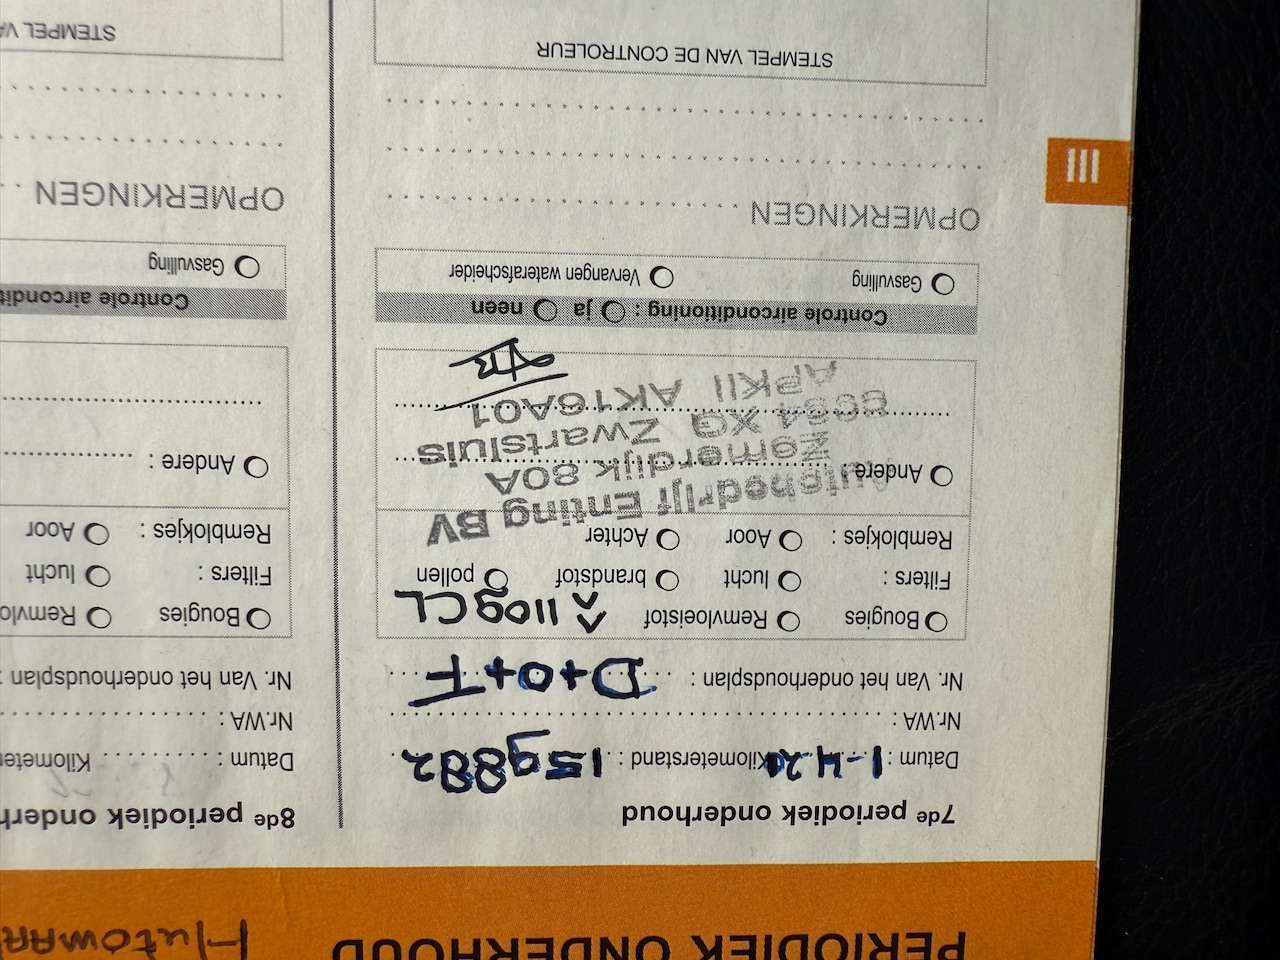 PERIODIEK ONDERHOUD
7de periodiek onderhoud
Datum : 1-4-20 Kilometerstand : 159882
Nr.WA :
Nr. Van het onderhoudsplan : D+O+F
Bougies Remvloeistof pollen
Filters : lucht brandstof
Remblokjes : Aoor Achter
Andere :
Autobedrijf Enting BV
Zomerdijk 80A
8064 XG Zwartsluis
APKII AK16A01
Controle airconditioning : ja neen
Gasvulling Vervangen waterafscheider
OPMERKINGEN
STEMPEL VAN DE CONTROLEUR
III
8de periodiek onderh
Datum : Kilomete
Nr.WA :
Nr. Van het onderhoudsplan :
Bougies Remvlo
Filters : lucht
Remblokjes : Aoor
Andere :
Controle aircondit
Gasvulling
OPMERKINGEN
STEMPEL VA